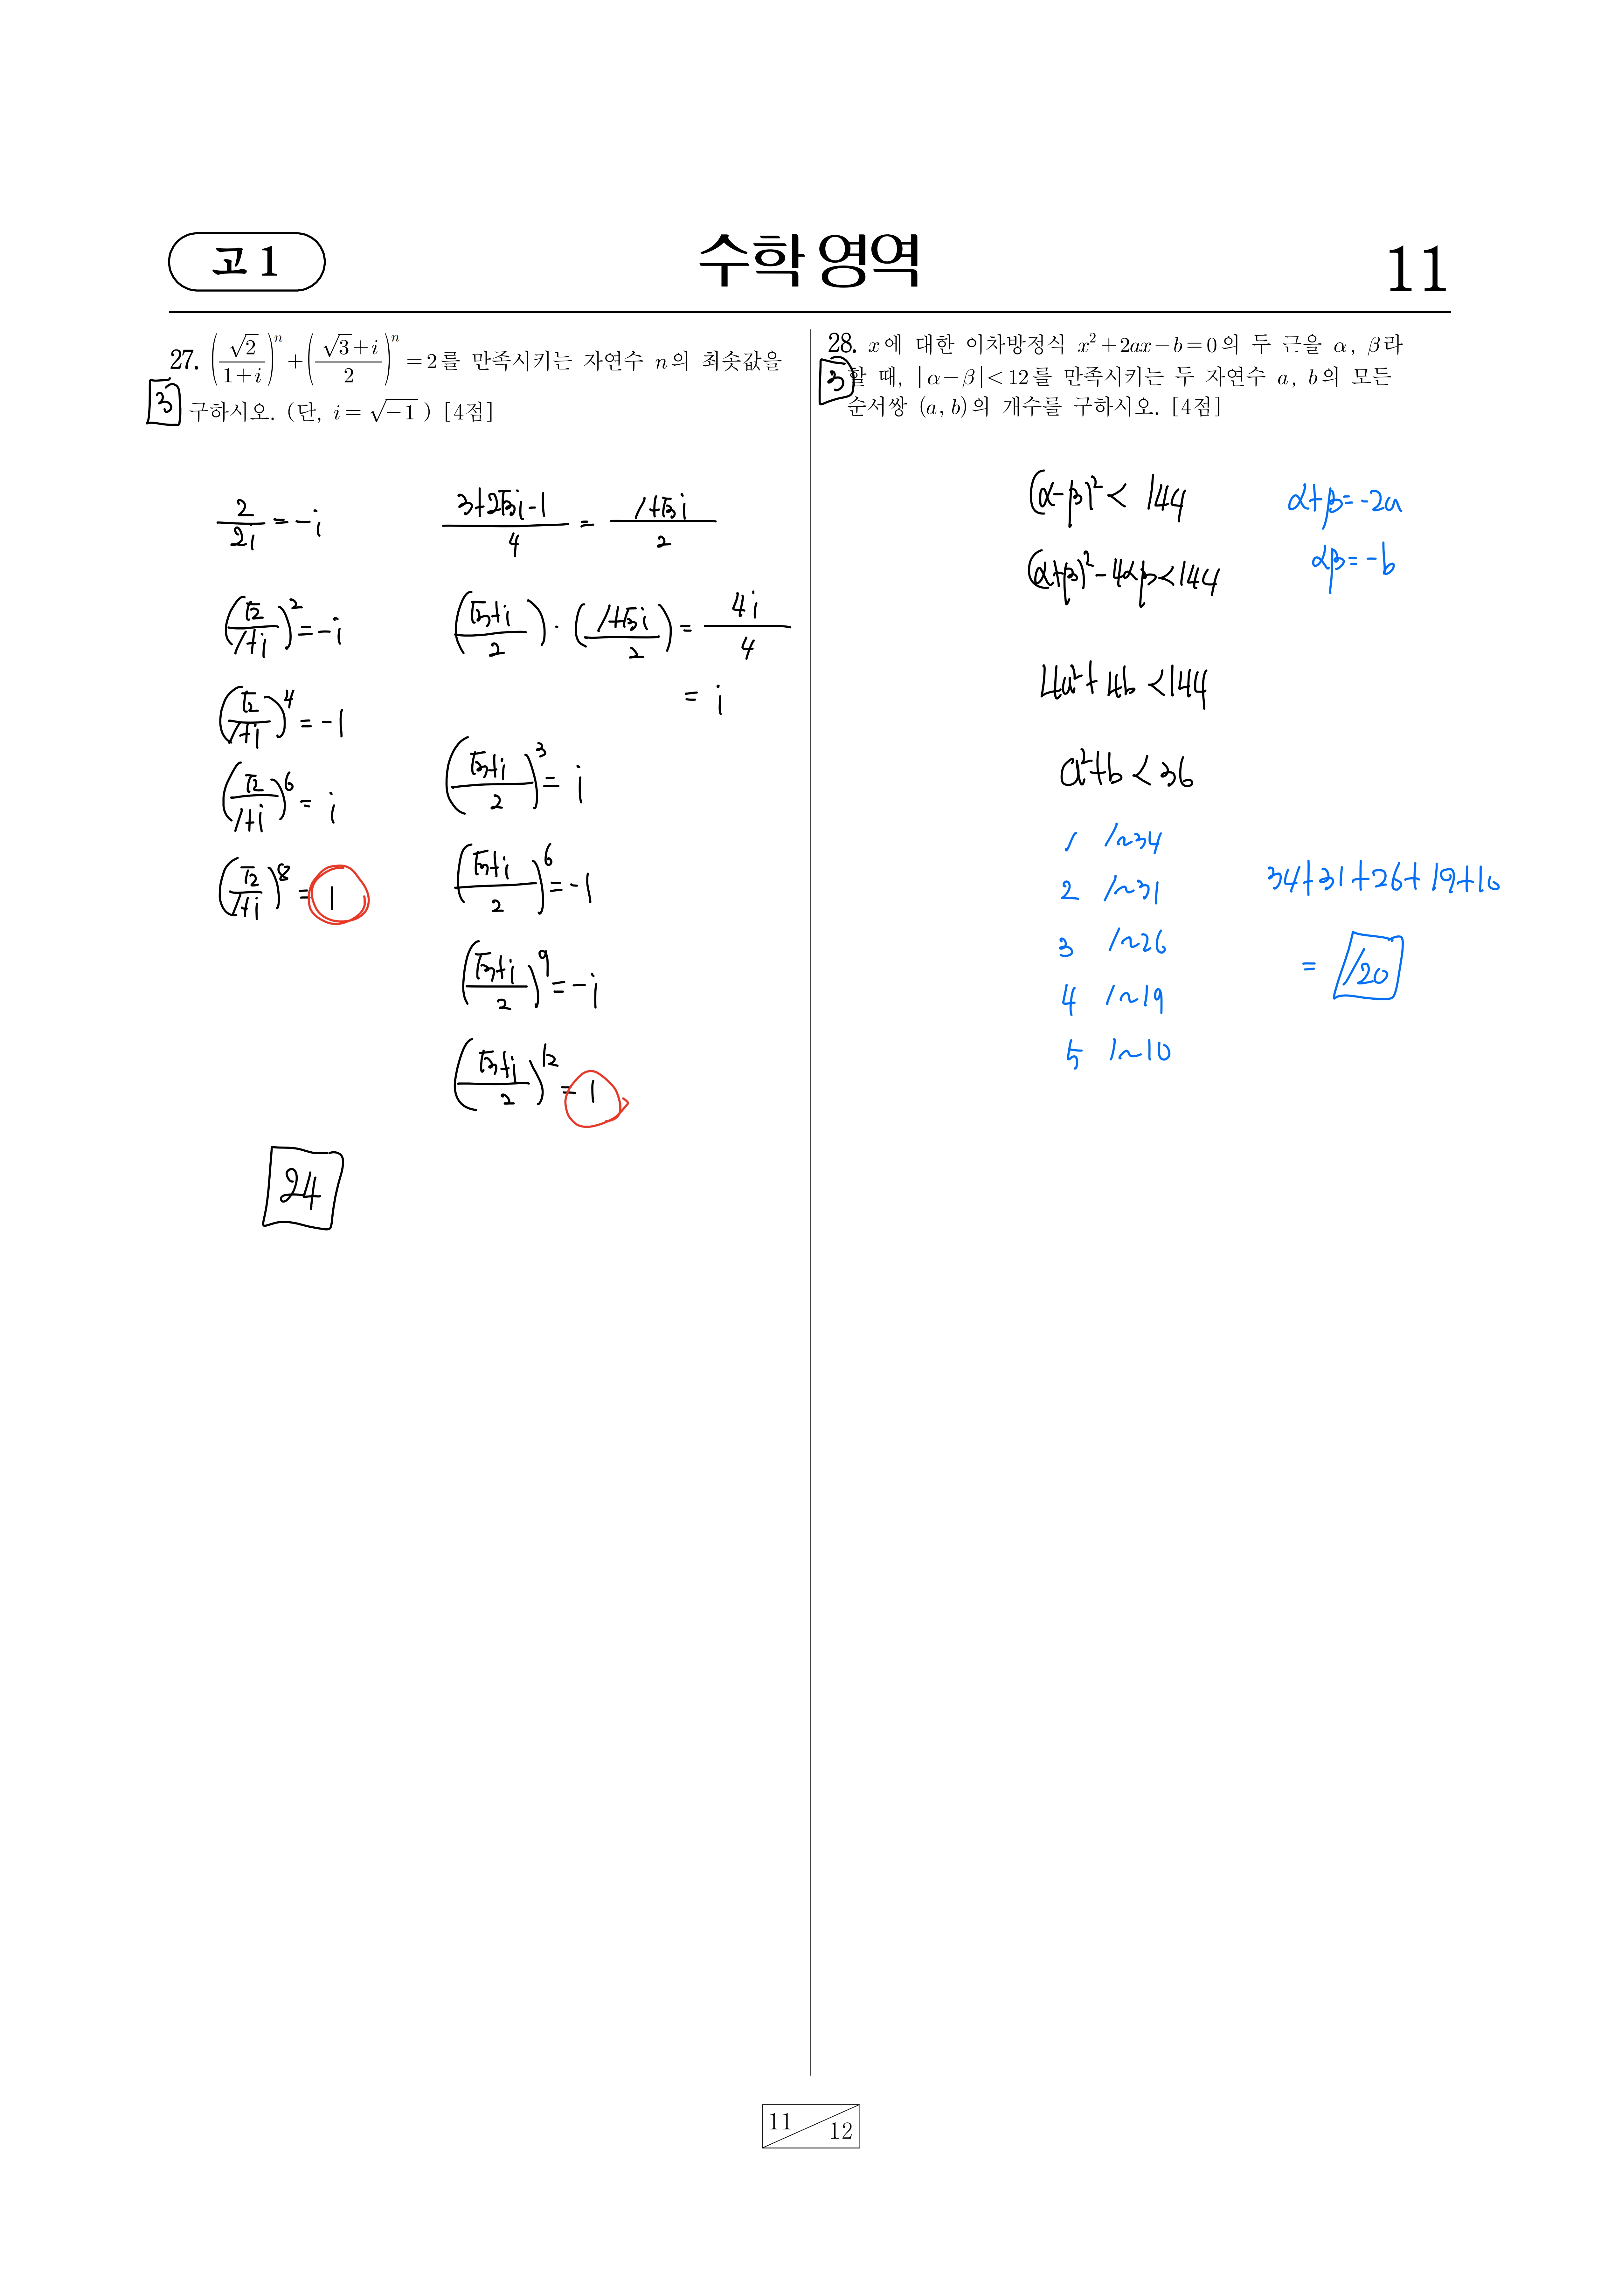 고 1
수학 영역
11
27. (√2/(1+i))ⁿ + ((√3+i)/2)ⁿ = 2를 만족시키는 자연수 n의 최솟값을
구하시오. (단, i = √-1) [4점]
3
2/2i = -i
(√2/(1+i))² = -i
(√2/(1+i))⁴ = -1
(√2/(1+i))⁶ = i
(√2/(1+i))⁸ = 1
(3+2√3i-1)/4 = (1+√3i)/2
((√3+i)/2) · ((1+√3i)/2) = 4i/4
= i
((√3+i)/2)³ = i
((√3+i)/2)⁶ = -1
((√3+i)/2)⁹ = -i
((√3+i)/2)¹² = 1
24
28. x에 대한 이차방정식 x²+2ax-b=0의 두 근을 α, β라
할 때, |α-β|<12를 만족시키는 두 자연수 a, b의 모든
순서쌍 (a, b)의 개수를 구하시오. [4점]
3
(α-β)² < 144
α+β=-2a
(α+β)²-4αβ<144
αβ=-b
4a²+4b<144
a²+b<36
1 1~34
2 1~31
3 1~26
4 1~19
5 1~10
34+31+26+19+10
= 120
11
12